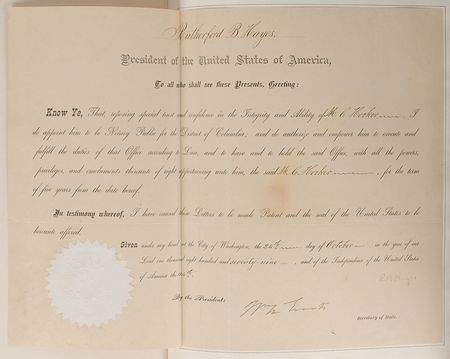 Rutherford B. Hayes,
President of the United States of America,
To all who shall see these Presents, Greeting:
Know Ye, That, reposing special trust and confidence in the Integrity and Ability of M. C. Hooker I
do appoint him to be Notary Public for the District of Columbia; and do authorize and empower him to execute and
fulfill the duties of that Office according to Law, and to have and to hold the said Office, with all the powers,
privileges, and emoluments thereunto of right appertaining unto him, the said M. C. Hooker, for the term
of five years from the date hereof.
In testimony whereof, I have caused these Letters to be made Patent and the seal of the United States to be
hereunto affixed.
Given under my hand at the City of Washington, the 24th day of October, in the year of our
Lord one thousand eight hundred and seventy-nine, and of the Independence of the United States
of America the 104th.
R B Hayes
By the President:
Wm M Evarts
Secretary of State.